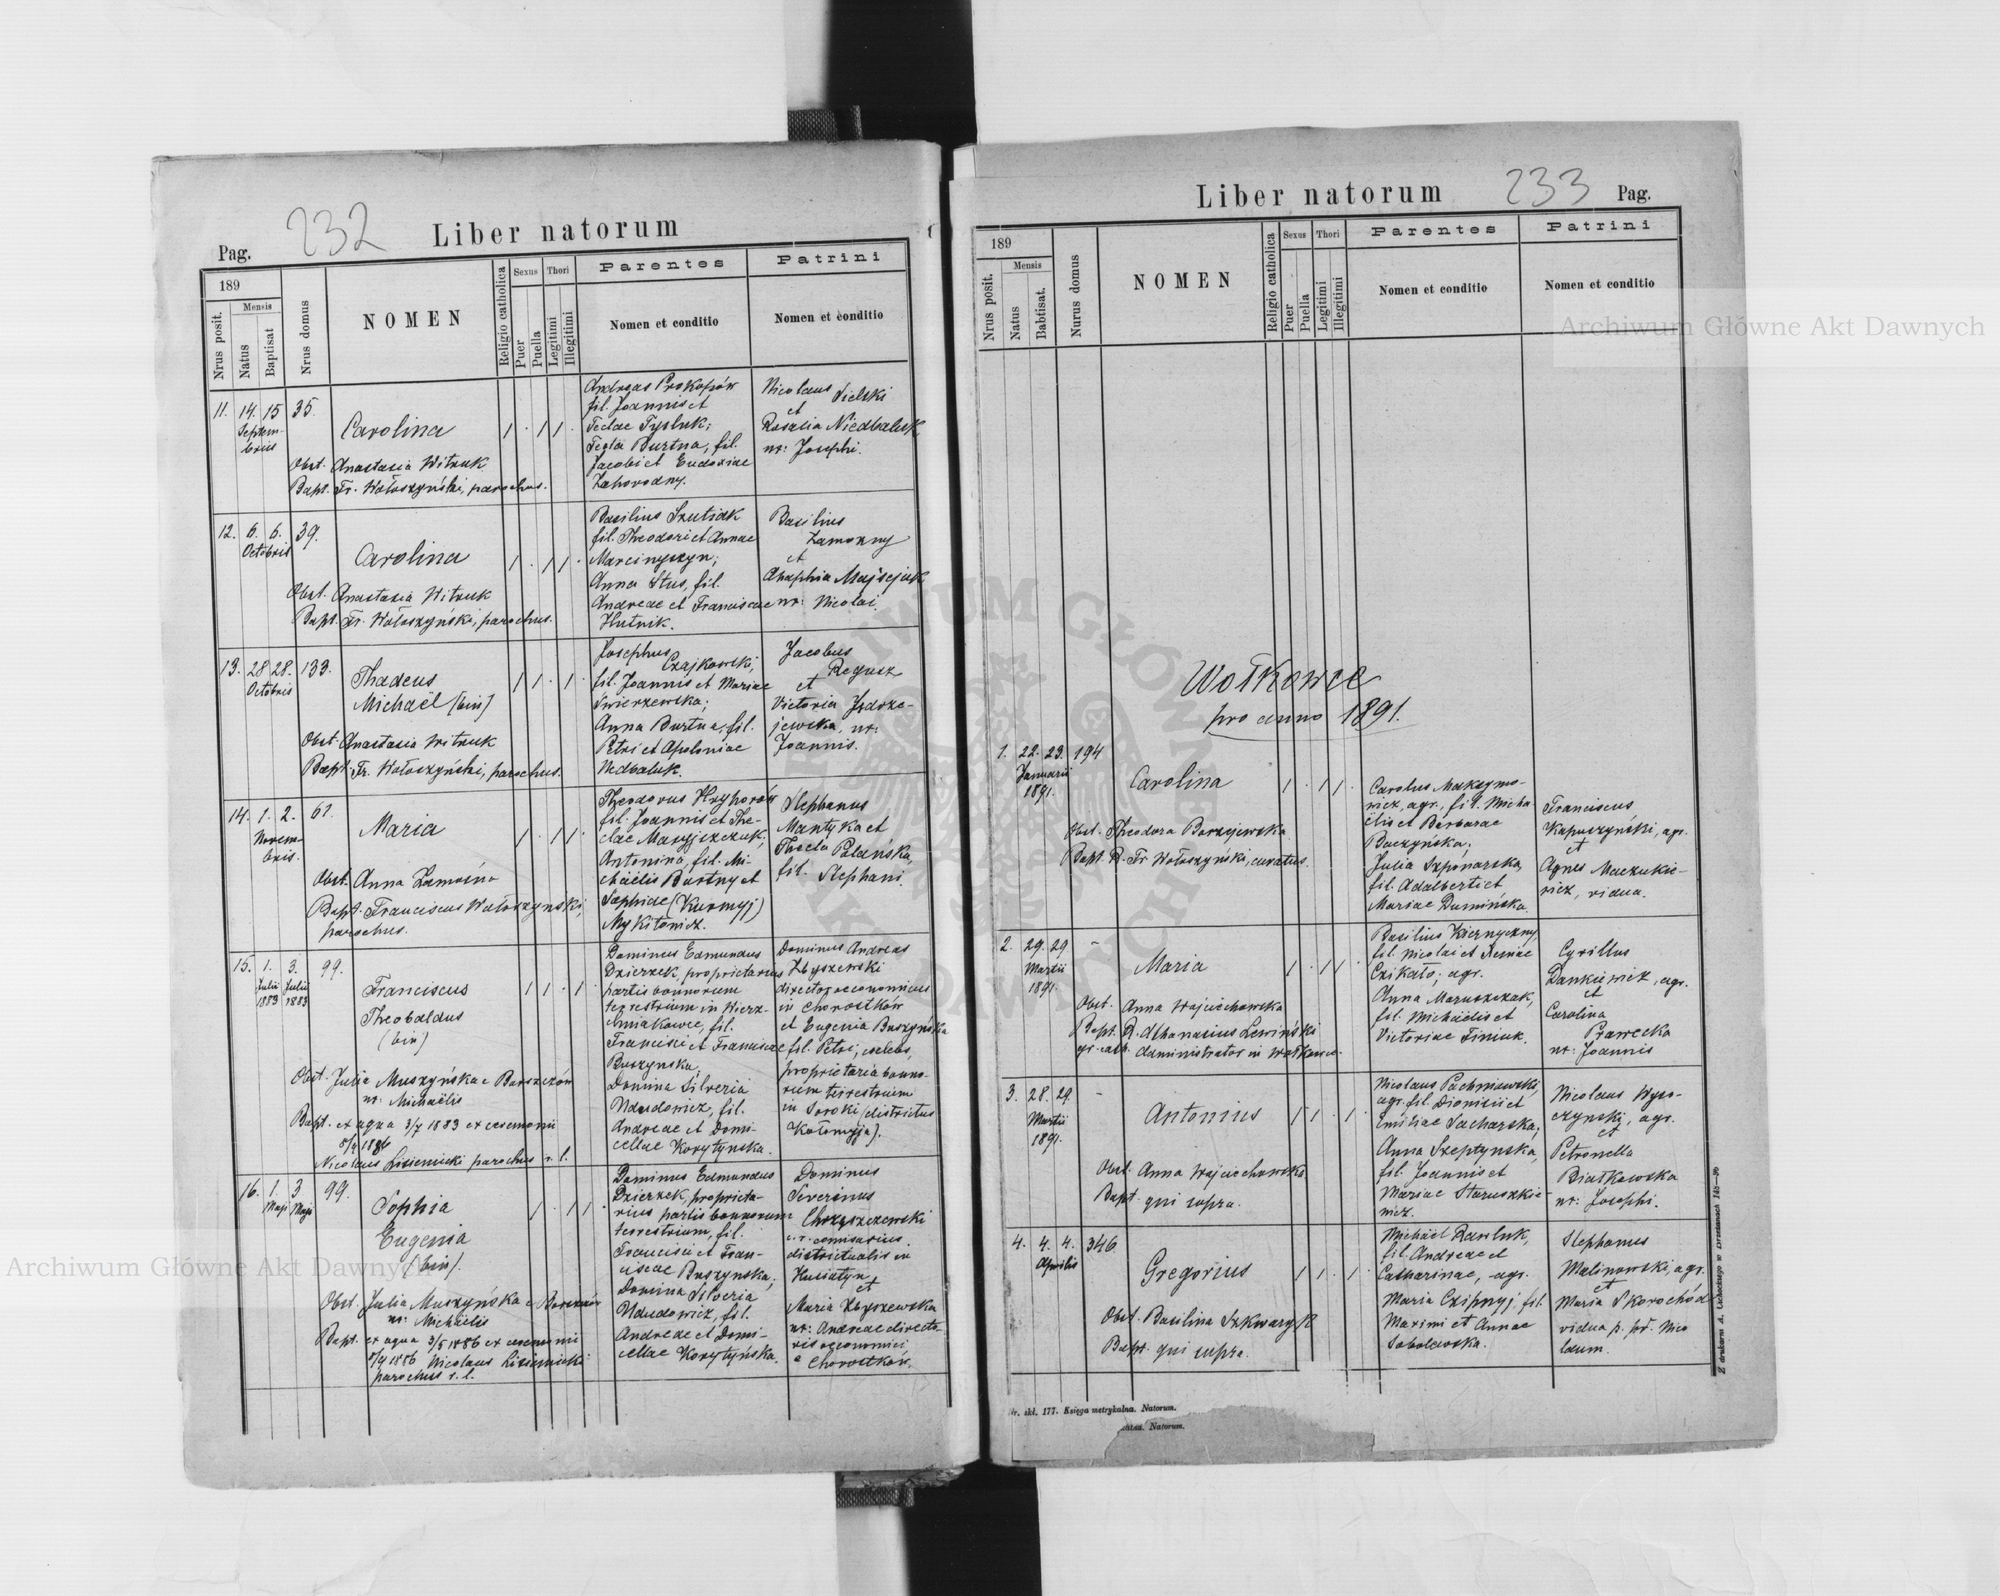 232
Pag.
Liber natorum
189
Nrus posit.
Mensis
Natus
Baptisat
Nrus domus
NOMEN
Religio catholica
Sexus
Puer
Puella
Thori
Legitimi
Illegitimi
Parentes
Nomen et conditio
Patrini
Nomen et conditio
11. 14. 15 35.
Septem-
bris
Carolina
1 . 1 1 .
Obst. Anastasia Witruk
Bapt. Fr. Wołoszyński, parochus.
Andreas Prokopów
fil. Joannis et
Teclae Tysluk;
Tecla Burtna, fil.
Jacobi et Eudoxiae
Zahorodny.
Nicolaus Sielski
et
Rosalia Niedbaluk
ux: Josephi.
12. 6. 6. 39.
Octobris
Carolina
1 . 1 1 .
Obst. Anastasia Witruk
Bapt. Fr. Wołoszyński, parochus.
Basilius Szutiak
fil. Theodori et Annae
Marcinyszyn;
Anna Stus, fil.
Andreae et Franciscae
Hutnik.
Basilius
Zamozny
et
Ahaphia Majsejuk
ux: Nicolai.
13. 28 28. 133.
Octobris
Thadeus
Michaël (bin)
1 1 . 1 .
Obst. Anastasia Witruk
Bapt. Fr. Wołoszyński, parochus.
Josephus
Czajkowski,
fil. Joannis et Mariae
Świerzewska;
Anna Burtna, fil.
Petri et Apoloniae
Nedbaluk.
Jacobus
Regusz
et
Victoria Jędrze-
jewska, ux:
Joannis.
14. 1. 2. 61.
Novem-
bris.
Maria
1 . 1 1 .
Obst. Anna Zamoźna
Bapt. Franciscus Wołoszyński,
parochus.
Theodorus Hryhorów
fil. Joannis et The-
clae Matyjszczuk;
Antonina, fil. Mi-
chaëlis Burtny et
Sophiae (Kurmyj)
Mykitowicz.
Stephanus
Mantyka et
Thecla Polańska,
fil. Stephani.
15. 1. 3. 99.
Julii Julii
1883 1883
Franciscus
Theobaldus
(bin)
1 1 . 1 .
Obst. Julia Muszyńska e Borszczów
ux: Michaëlis
Bapt. ex aqua 3/7 1883 ex ceremonii
8/9 1886
Nicolaus Lisieniecki parochus r. l.
Dominus Edmundus
Dzierzek, proprietarius
partis bonorum
terrestrium in Wierz-
chniakowce, fil.
Francisci et Franciscae
Buszynska;
Domina Silveria
Ududowicz, fil.
Andreae et Domi-
cellae Korytynska.
Dominus Andreas
Zbyszewski
director oeconomicus
in Chorostków
et Eugenia Buszyńska
fil. Petri, caelebs,
proprietaria bono-
rum terrestrium
in Soroki (districtus
Kołomyja).
16. 1. 3 99.
Maji Maji
Sophia
Eugenia
(bin).
1 . 1 1 .
Obst. Julia Muszyńska e Borszczów
ux: Michaëlis
Bapt. ex aqua 3/5 1886 ex ceremonii
8/9 1886 Nicolaus Lisieniecki
parochus r. l.
Dominus Edmundus
Dzierzek, proprieta-
rius partis bonorum
terrestrium, fil.
Francisci et Fran-
ciscae Buszynska;
Domina Silveria
Ududowicz, fil.
Andreae et Domi-
cellae Korytyńska.
Dominus
Severinus
Chrzyszczewski
c. r. comisarius
districtualis in
Husiatyn
et
Maria Zbyszewska
ux: Andreae directo-
ris oeconomici
e Chorostków.
Liber natorum
233
Pag.
189
Nrus posit.
Mensis
Natus
Babtisat.
Nurus domus
NOMEN
Religio catholica
Sexus
Puer
Puella
Thori
Legitimi
Illegitimi
Parentes
Nomen et conditio
Patrini
Nomen et conditio
Wołkowce
pro anno 1891.
1. 22. 23. 194
Januarii
1891.
Carolina
1 . 1 1 .
Obst. Theodora Borzejewska
Bapt. R. Fr Wołoszyński, curatus.
Carolus Maksymo-
wicz, agr., fil. Micha-
ëlis et Barbarae
Baczyńska;
Julia Szpónarska,
fil. Adalberti et
Mariae Dumińska.
Franciscus
Kapuszyński, agr.
et
Agnes Maczukie-
wicz, vidua.
2. 29. 29 -
Martii
1891.
Maria
1 . 1 1 .
Obst. Anna Wojciechowska
Bapt. R. Athanasius Lewiński
gr. cath. administrator in Wołkowce.
Basilius Kiernyczny,
fil. Nicolai et Xeniae
Czikało, agr.
Anna Maruszczak,
fil. Michaëlis et
Victoriae Finiuk.
Cyrillus
Dankiewicz, agr.
et
Carolina
Prawecka
ux: Joannis
3. 28. 29. -
Martii
1891.
Antonius
1 1 . 1 .
Obst. Anna Wojciechowska
Bapt. qui supra.
Nicolaus Pachniowski,
agr. fil. Dionisii et
Emiliae Sacharska;
Anna Szeptynska,
fil. Joannis et
Mariae Staruszkie-
wicz.
Nicolaus Wyso-
czynski, agr.
et
Petronella
Białkowska
ux: Josephi.
4. 4. 4. 346.
Aprilis
Gregorius
1 1 . 1 .
Obst. Basilina Szkwaryk
Bapt. qui supra.
Michaël Pawluk,
fil. Andreae et
Catharinae, agr.
Maria Czipnyj fil.
Maximi et Annae
Sobolewska.
Stephanus
Malinowski, agr.
et
Maria Skorochód
vidua p. pr. Nico
laum.
Nr. skł. 177. Księga metrykalna. Natorum.
Natorum.
Z drukarni A. Cichockiego w Brzeżanach 148—96
Archiwum Główne Akt Dawnych
Archiwum Główne Akt Dawnych
ARCHIWUM GŁÓWNE AKT DAWNYCH